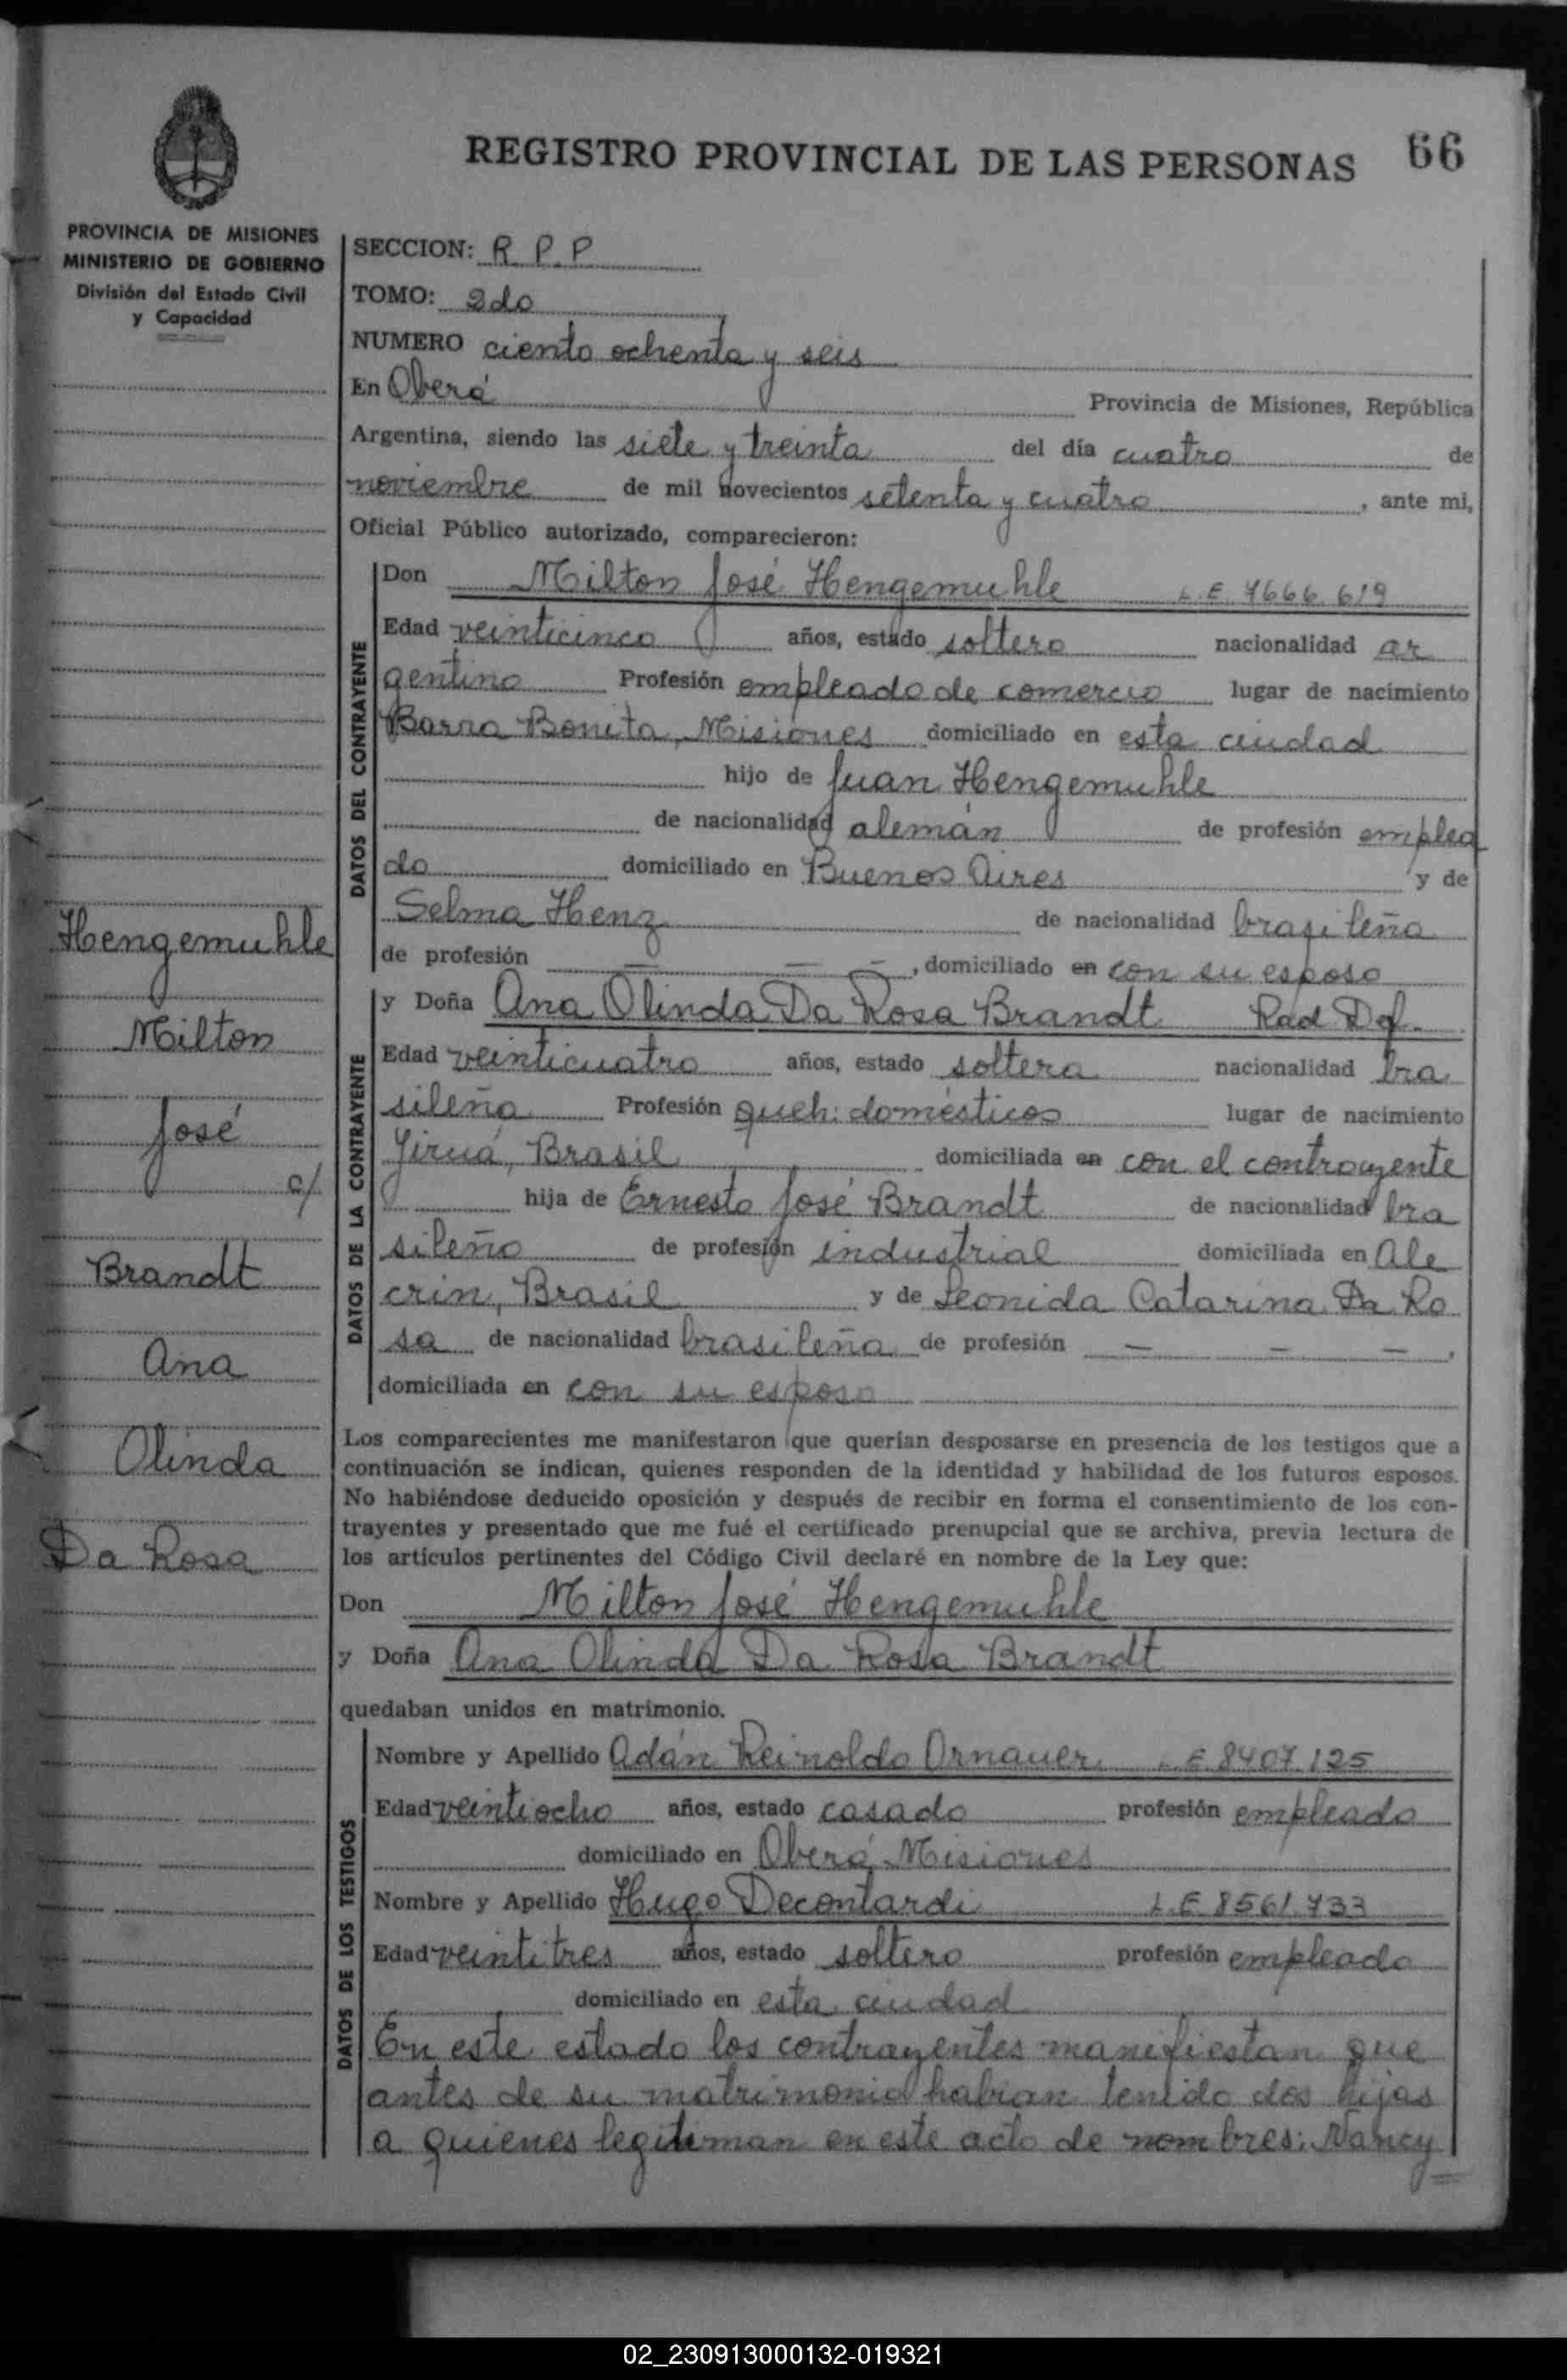 REGISTRO PROVINCIAL DE LAS PERSONAS 66
PROVINCIA DE MISIONES
MINISTERIO DE GOBIERNO
División del Estado Civil
y Capacidad
SECCION: R P P
TOMO: 2do
NUMERO ciento ochenta y seis
En Oberá Provincia de Misiones, República
Argentina, siendo las siete y treinta del día cuatro de
noviembre de mil novecientos setenta y cuatro, ante mi,
Oficial Público autorizado, comparecieron:
DATOS DEL CONTRAYENTE
Don Milton José Hengemuhle L.E. 7666.619
Edad veinticinco años, estado soltero nacionalidad ar
gentino Profesión empleado de comercio lugar de nacimiento
Barra Bonita, Misiones domiciliado en esta ciudad
hijo de Juan Hengemuhle
de nacionalidad alemán de profesión emplea
do domiciliado en Buenos Aires y de
Selma Henz de nacionalidad brasileña
de profesión — — —, domiciliado en con su esposo
DATOS DE LA CONTRAYENTE
y Doña Ana Olinda Da Rosa Brandt Rad Def.
Edad veinticuatro años, estado soltera nacionalidad bra
sileña Profesión queh: domésticos lugar de nacimiento
Giruá, Brasil domiciliada en con el contrayente
hija de Ernesto José Brandt de nacionalidad bra
sileño de profesión industrial domiciliada en Ale
crin, Brasil y de Leonida Catarina Da Ro
sa de nacionalidad brasileña de profesión — — —,
domiciliada en con su esposo
Los comparecientes me manifestaron que querían desposarse en presencia de los testigos que a
continuación se indican, quienes responden de la identidad y habilidad de los futuros esposos.
No habiéndose deducido oposición y después de recibir en forma el consentimiento de los con-
trayentes y presentado que me fué el certificado prenupcial que se archiva, previa lectura de
los artículos pertinentes del Código Civil declaré en nombre de la Ley que:
Don Milton José Hengemuhle
y Doña Ana Olinda Da Rosa Brandt
quedaban unidos en matrimonio.
DATOS DE LOS TESTIGOS
Nombre y Apellido Adán Reinoldo Ornauer L.E 8407.125
Edad veintiocho años, estado casado profesión empleado
domiciliado en Oberá Misiones
Nombre y Apellido Hugo Decontardi L.E 8561.733
Edad veintitres años, estado soltero profesión empleado
domiciliado en esta ciudad
En este estado los contrayentes manifiestan que
antes de su matrimonio habian tenido dos hijas
a quienes legitiman en este acto de nombres: Nancy
Hengemuhle
Milton
José
c/
Brandt
Ana
Olinda
Da Rosa
02_230913000132-019321